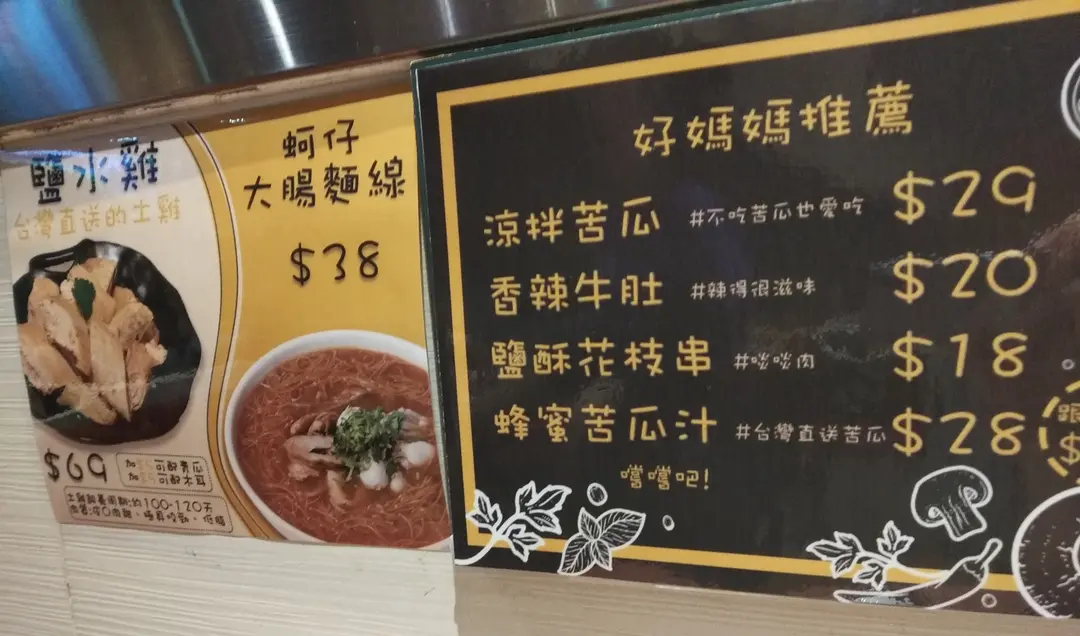 鹽水雞
台灣直送的土雞
$69
可配青瓜
可配木耳
100-120天
蚵仔
大腸麵線
$38
好媽媽推薦
涼拌苦瓜 #不吃苦瓜也愛吃 $29
香辣牛肚 #辣得很滋味 $20
鹽酥花枝串 #啖啖肉 $18
蜂蜜苦瓜汁 #台灣直送苦瓜 $28
嚐嚐吧!
跟
$